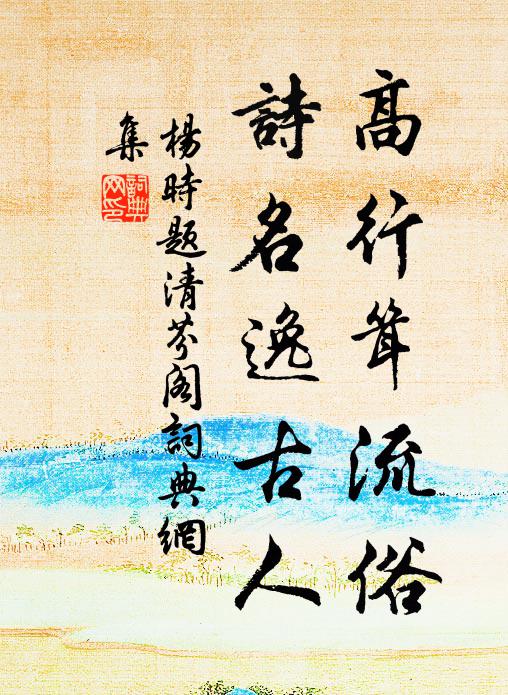 高行耸流俗
詩名逸古人
楊時題清芬阁詞典網
集
詞典
网印